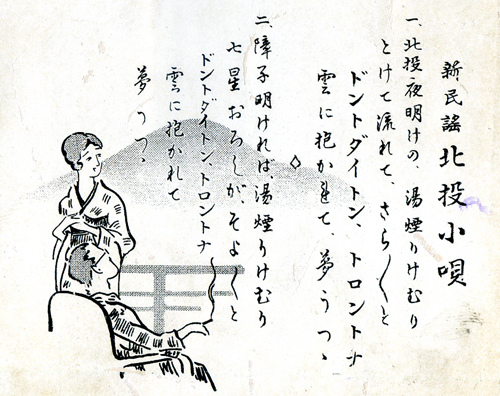 新民謡 北投小唄
一、北投夜明けの、湯煙りけむり
とけて流れて、さら〳〵と
ドントダイトン、トロントナ
雲に抱かれて、夢うつゝ
二、障子明ければ、湯煙りけむり
七星おろしが、そよ〳〵と
ドントダイトン、トロントナ
雲に抱かれて
夢うつゝ